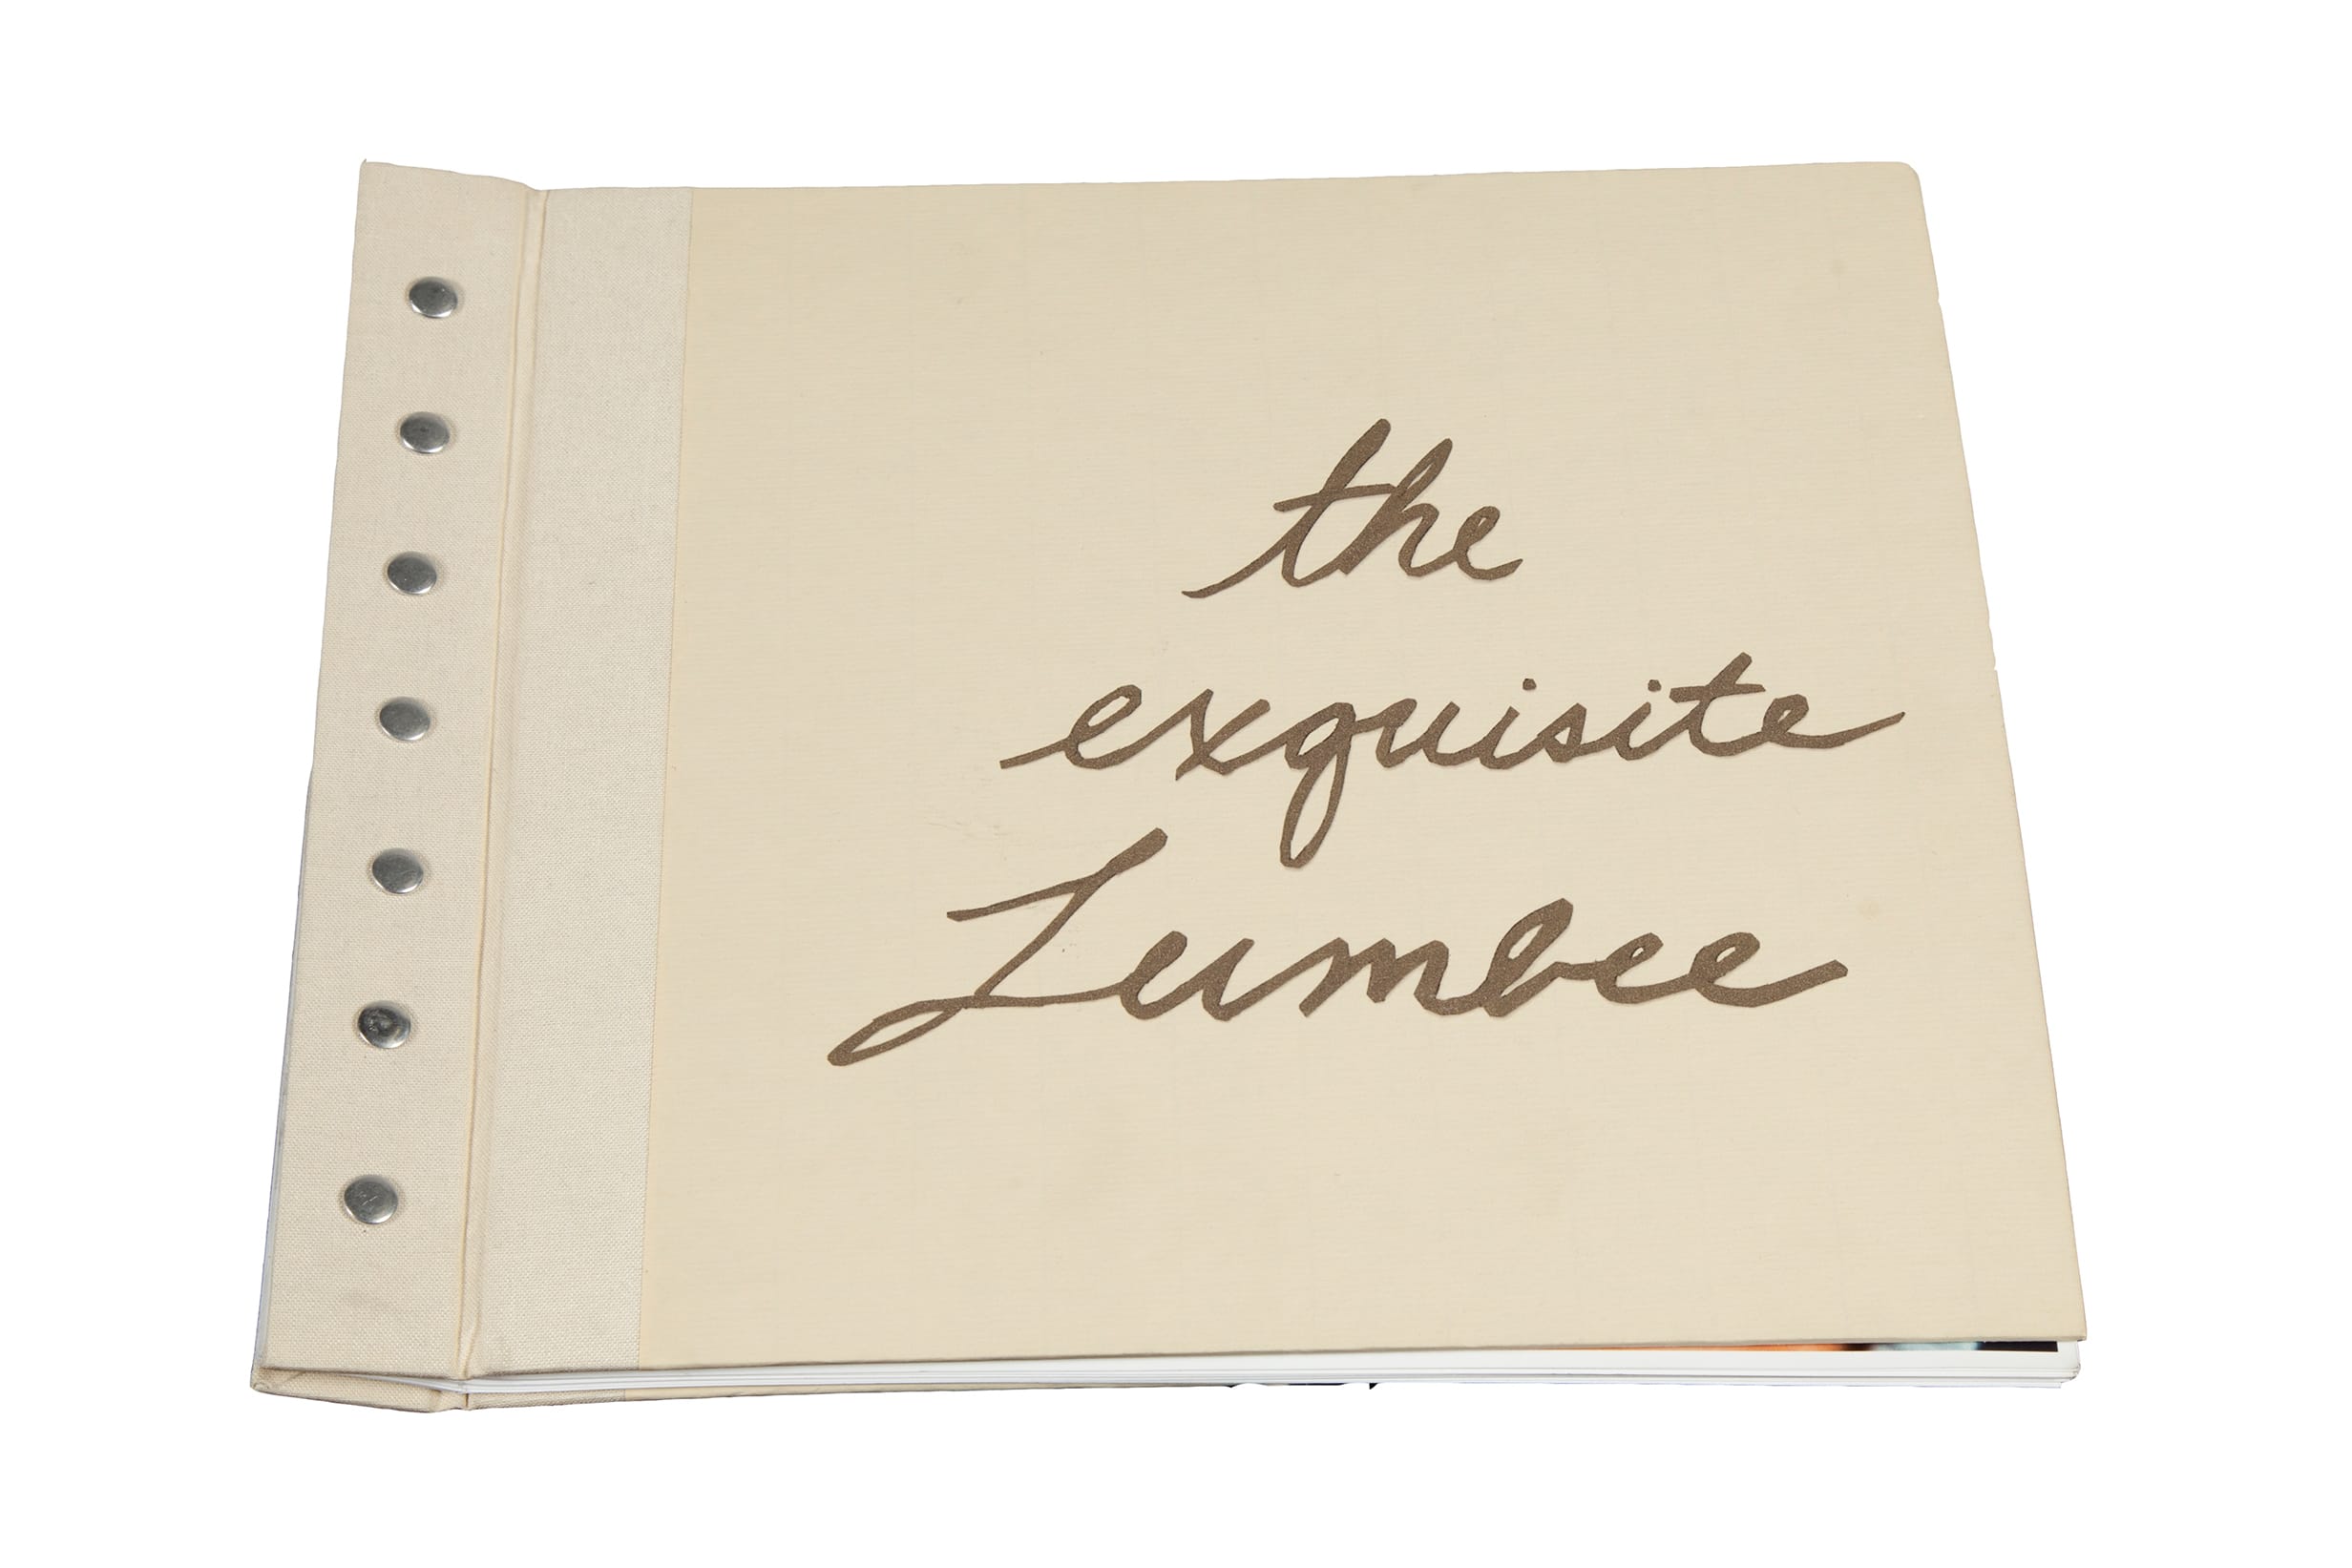 the
exquisite
Lumbee